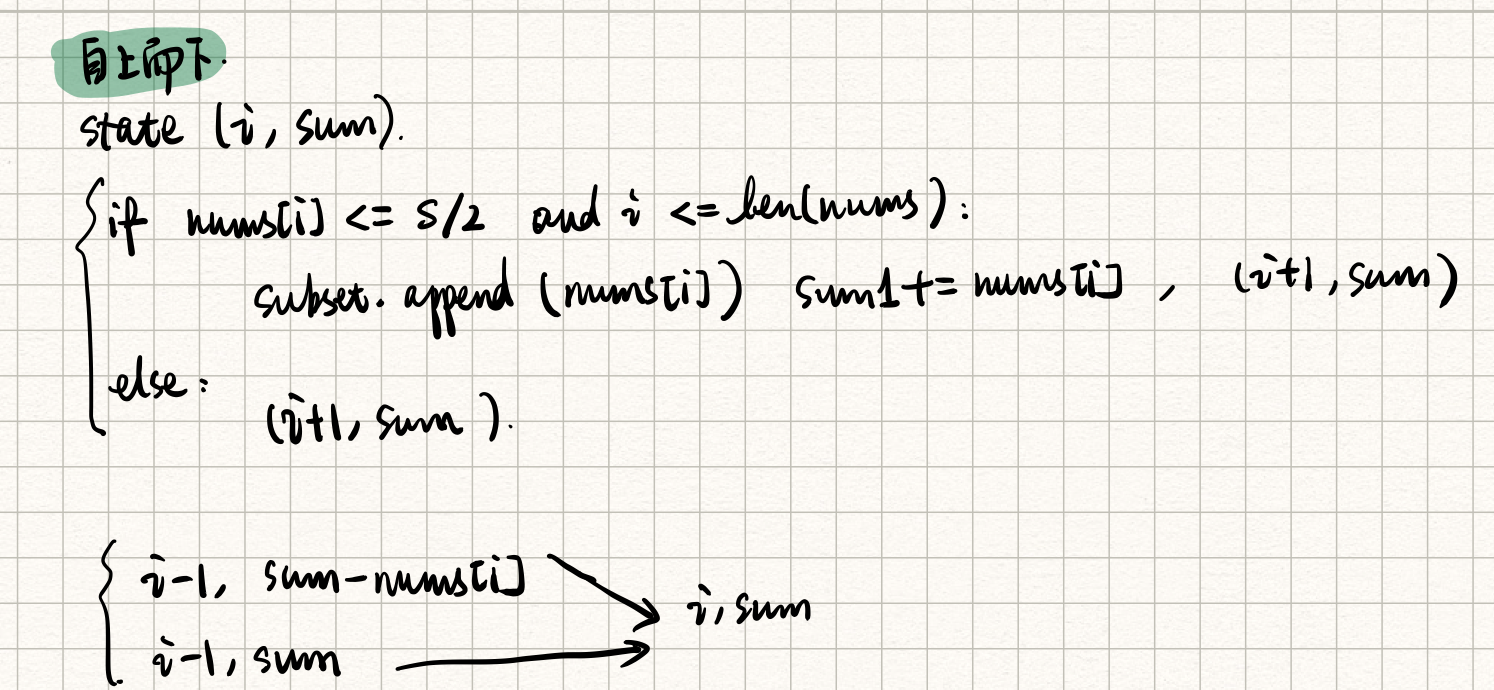 自上而下.
state (i, sum).
if nums[i] <= S/2 and i <= len(nums):
subset.append(nums[i]) sum1+= nums[i] , (i+1, sum)
else:
(i+1, sum).
i-1, sum-nums[i]
i, sum
i-1, sum